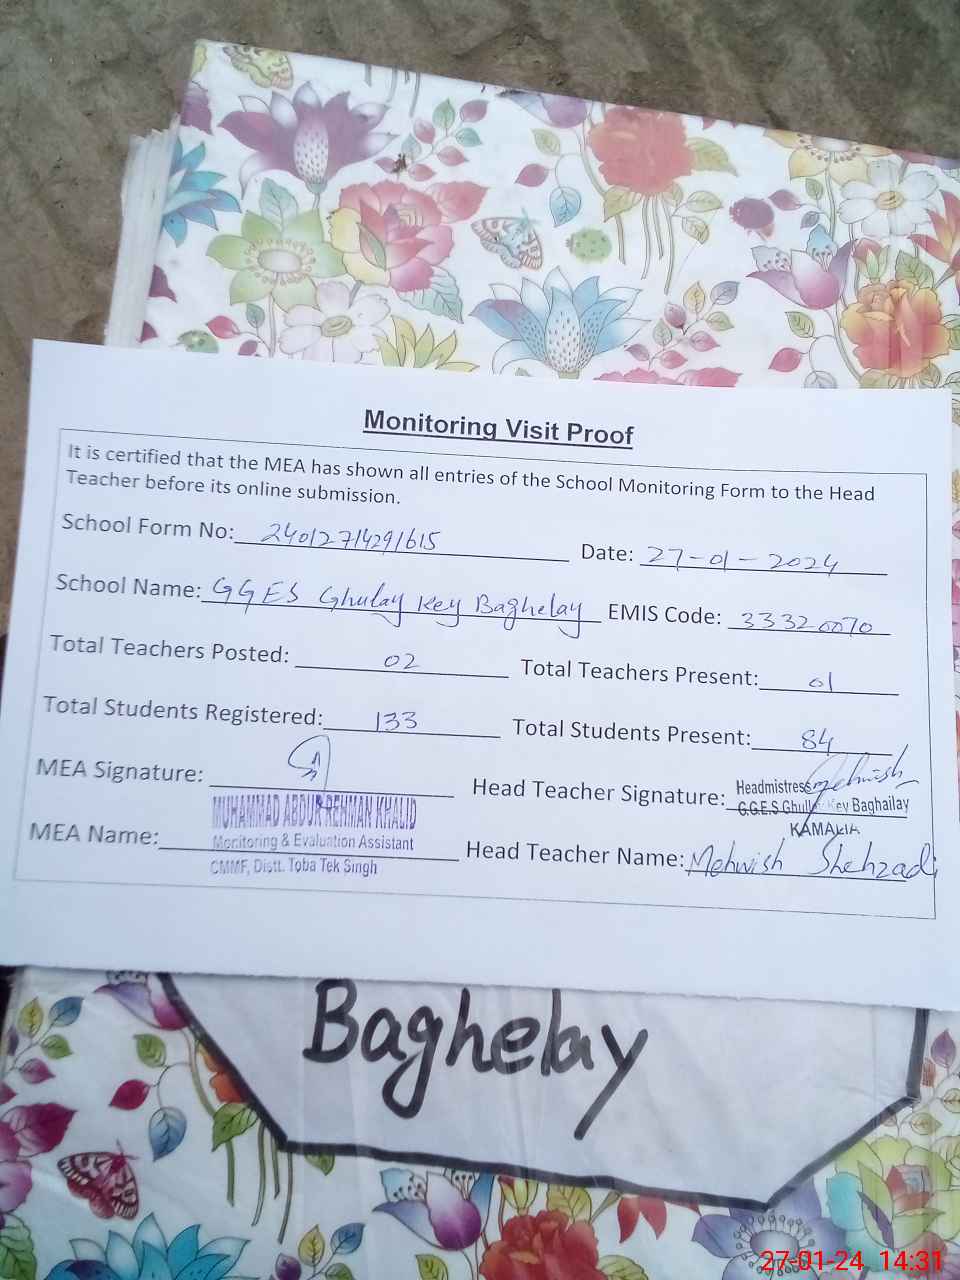 Monitoring Visit Proof
It is certified that the MEA has shown all entries of the School Monitoring Form to the Head
Teacher before its online submission.
School Form No: 24012714291615 Date: 27-01-2024
School Name: GGES Ghulay Key Baghelay EMIS Code: 33320070
Total Teachers Posted: 02 Total Teachers Present: 01
Total Students Registered: 133 Total Students Present: 84
MEA Signature: Head Teacher Signature: Mehwish
Headmistress
G.G.E.S Ghullay Key Baghailay
KAMALIA
MEA Name: MUHAMMAD ABDUR REHMAN KHALID
Monitoring & Evaluation Assistant
CMMF, Distt. Toba Tek Singh
Head Teacher Name: Mehwish Shehzadi
Baghelay
27-01-24 14:31